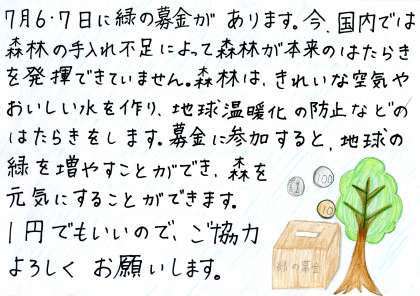 7月6・7日に緑の募金が あります。今、国内では
森林の手入れ不足によって森林が本来のはたらき
を発揮できていません。森林は、きれいな空気や
おいしい水を作り、地球温暖化の防止などの
はたらきをします。募金に参加すると、地球の
緑を増やすことができ、森を
元気にすることができます。
1円でもいいので、ご協力
よろしく お願いします。
100
10
緑の募金